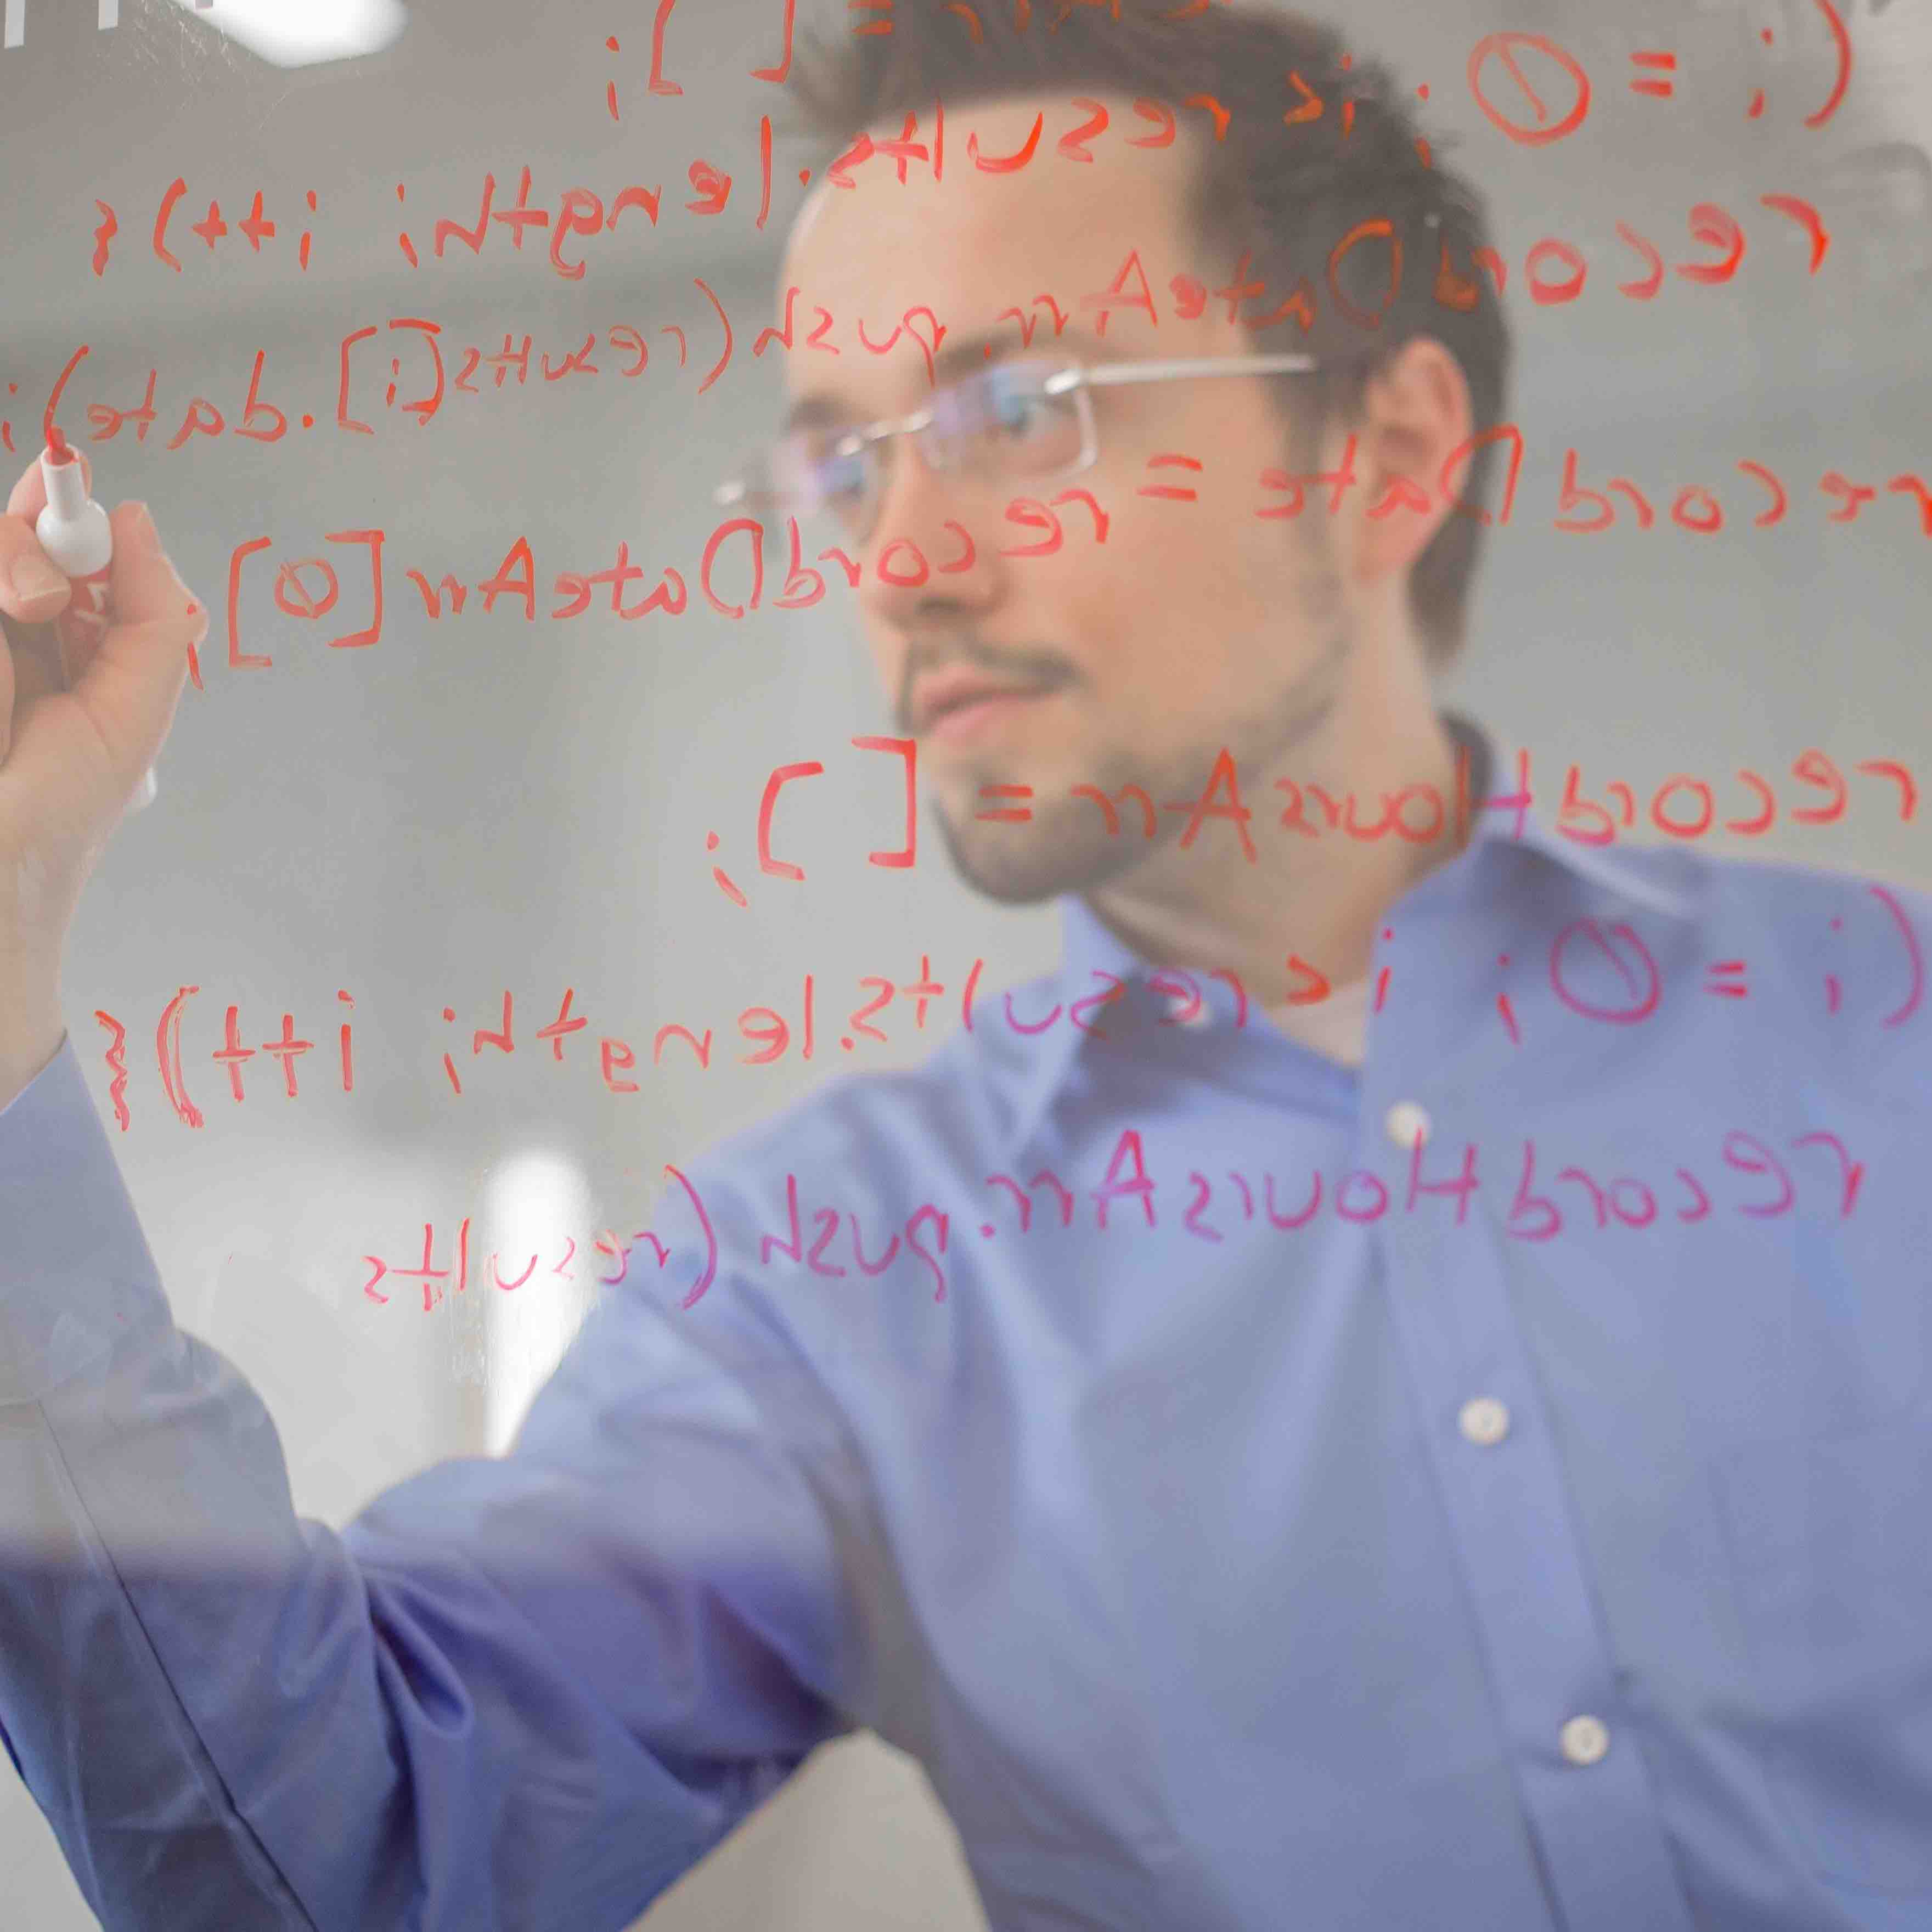 = [ ];
(i = 0; i < results.length; i++){
recordDateArr.push(results[i].date);
recordDate = recordDateArr[0];
recordHoursArr = [ ];
(i = 0; i < results.length; i++){
recordHoursArr.push(results